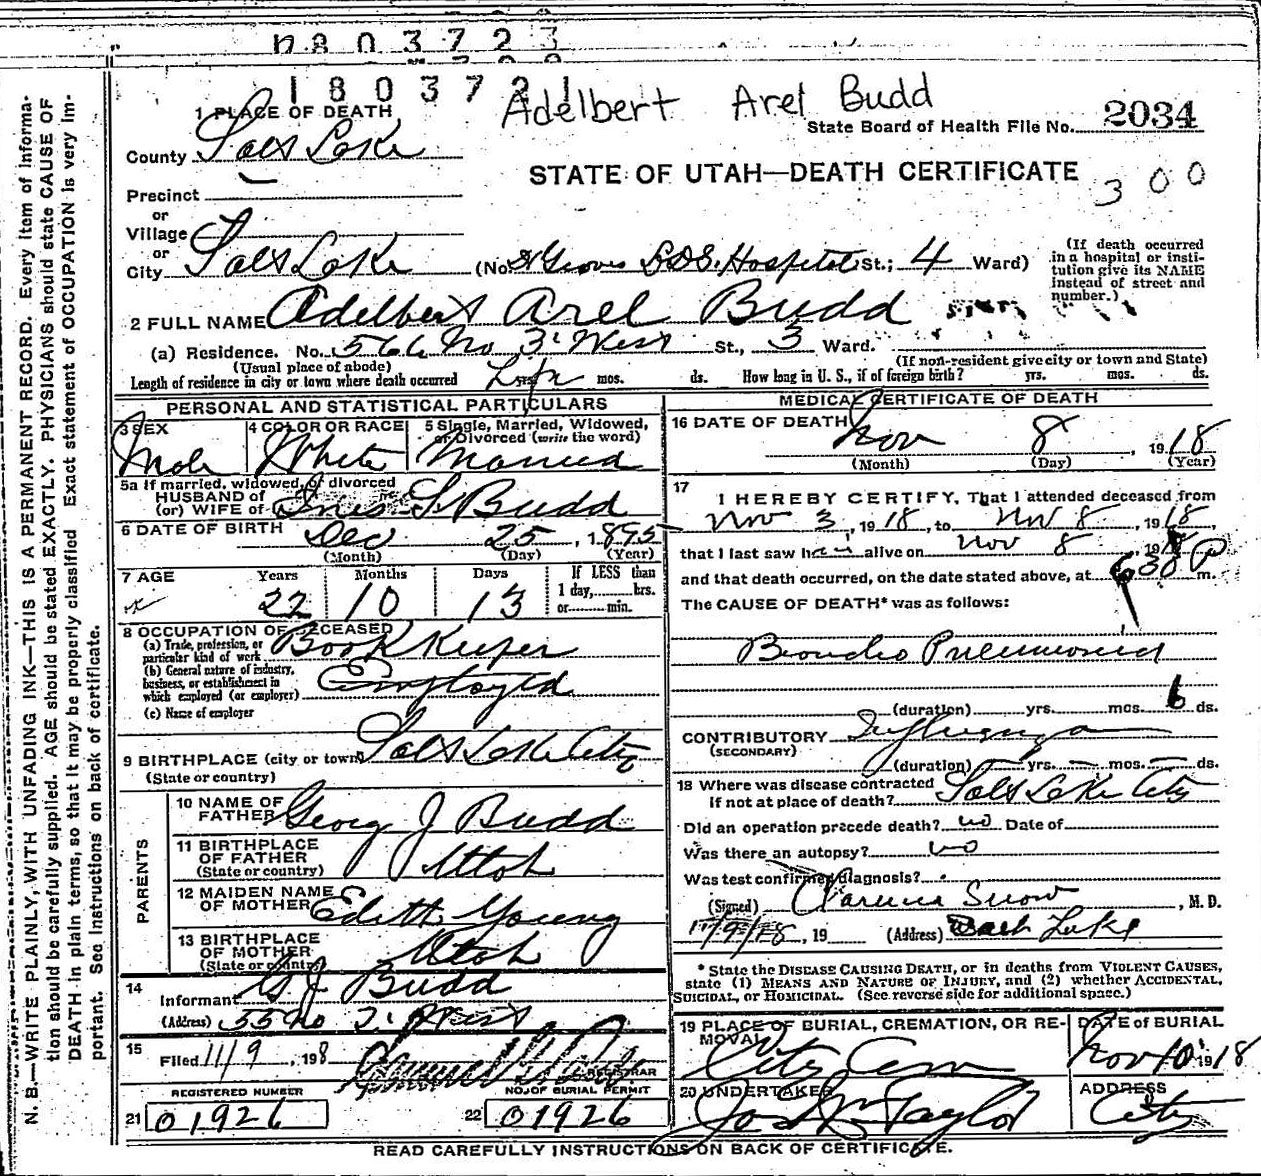 1803723
1803721
Adelbert Arel Budd
1 PLACE OF DEATH
State Board of Health File No. 2034
County Salt Lake
STATE OF UTAH—DEATH CERTIFICATE
300
Precinct
or
Village
or
City Salt Lake (No. Groves L.D.S. Hospital St.; 4 Ward)
(If death occurred in a hospital or institution give its NAME instead of street and number.)
2 FULL NAME Adelbert Arel Budd
(a) Residence. No. 566 No 3' West St., 3 Ward.
(Usual place of abode) (If non-resident give city or town and State)
Length of residence in city or town where death occurred Life yrs. mos. ds. How long in U. S., if of foreign birth? yrs. mos. ds.
PERSONAL AND STATISTICAL PARTICULARS
3 SEX Male
4 COLOR OR RACE White
5 Single, Married, Widowed, or Divorced (write the word) Married
5a If married, widowed, or divorced
HUSBAND of
(or) WIFE of S. Budd
6 DATE OF BIRTH Dec 25, 1895
(Month) (Day) (Year)
7 AGE Years 22 Months 10 Days 13
If LESS than 1 day, hrs. or min.
8 OCCUPATION OF DECEASED
(a) Trade, profession, or particular kind of work Book Keeper
(b) General nature of industry, business, or establishment in which employed (or employer) Employed
(c) Name of employer
9 BIRTHPLACE (city or town) Salt Lake City
(State or country)
PARENTS
10 NAME OF FATHER Georg J Budd
11 BIRTHPLACE OF FATHER (State or country) Utah
12 MAIDEN NAME OF MOTHER Edith Young
13 BIRTHPLACE OF MOTHER (State or country) Utah
14
Informant G J Budd
(Address) 55 No 2' West
15
Filed 11/9, 198
REGISTRAR
REGISTERED NUMBER
21 01926
NO. OF BURIAL PERMIT
22 01926
MEDICAL CERTIFICATE OF DEATH
16 DATE OF DEATH Nov 8, 1918
(Month) (Day) (Year)
17
I HEREBY CERTIFY, That I attended deceased from
Nov 3, 1918, to Nov 8, 1918,
that I last saw him alive on Nov 8 1918
and that death occurred, on the date stated above, at 6 30 P m.
The CAUSE OF DEATH* was as follows:
Broncho Pneumonia
(duration) yrs. mos. 6 ds.
CONTRIBUTORY Influenza
(SECONDARY)
(duration) yrs. mos. ds.
18 Where was disease contracted
if not at place of death? Salt Lake City
Did an operation precede death? no Date of
Was there an autopsy? no
Was test confirmed diagnosis?
(Signed) Clarence Snow, M. D.
11/9/18, 19 (Address) Salt Lake
* State the DISEASE CAUSING DEATH, or in deaths from VIOLENT CAUSES,
state (1) MEANS AND NATURE OF INJURY, and (2) whether ACCIDENTAL,
SUICIDAL, or HOMICIDAL. (See reverse side for additional space.)
19 PLACE OF BURIAL, CREMATION, OR REMOVAL City Cem
DATE of BURIAL Nov 10 1918
20 UNDERTAKER Jos Wm Taylor
ADDRESS City
READ CAREFULLY INSTRUCTIONS ON BACK OF CERTIFICATE.
N. B.—WRITE PLAINLY, WITH UNFADING INK—THIS IS A PERMANENT RECORD. Every item of information should be carefully supplied. AGE should be stated EXACTLY. PHYSICIANS should state CAUSE OF DEATH in plain terms, so that it may be properly classified Exact statement of OCCUPATION is very important. See instructions on back of certificate.